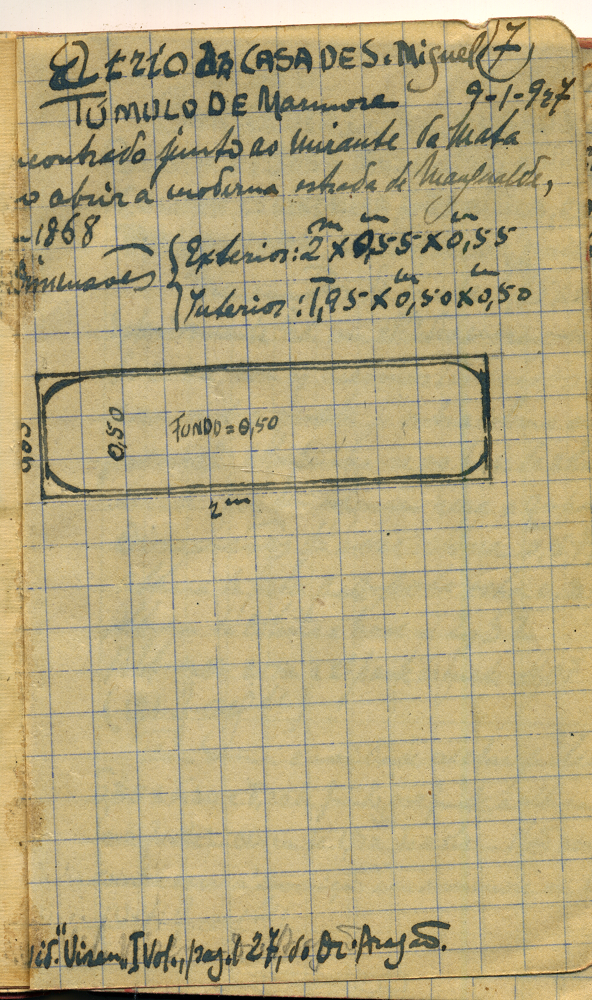 Atrio da CASA DE S. Miguel (7)
TÚMULO DE Marmore 9-1-927
encontrado junto ao mirante da Mata
ao abrir a moderna estrada de Mangualde,
1868
Dimensões { Exterior: 2m X 0,55m X 0,55m
Interior: 1,95 X 0,50m X 0,50m
0,50
FUNDO = 0,50
2m
vid. "Viseu" I Vol., pag. 27, do Dr. Aragão.